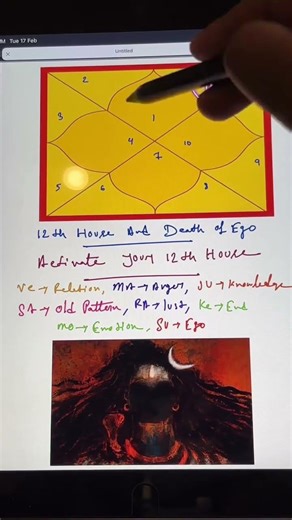 Tue 17 Feb
Untitled
2
3
1
4
10
7
9
5
6
8
12th House And Death of Ego
Activate Your 12th House
Ve → Reletion, MA → Anger, JU → Knowledge
SA → Old Pattern, RA → lust, Ke → End
MO → Emotion, SU → Ego